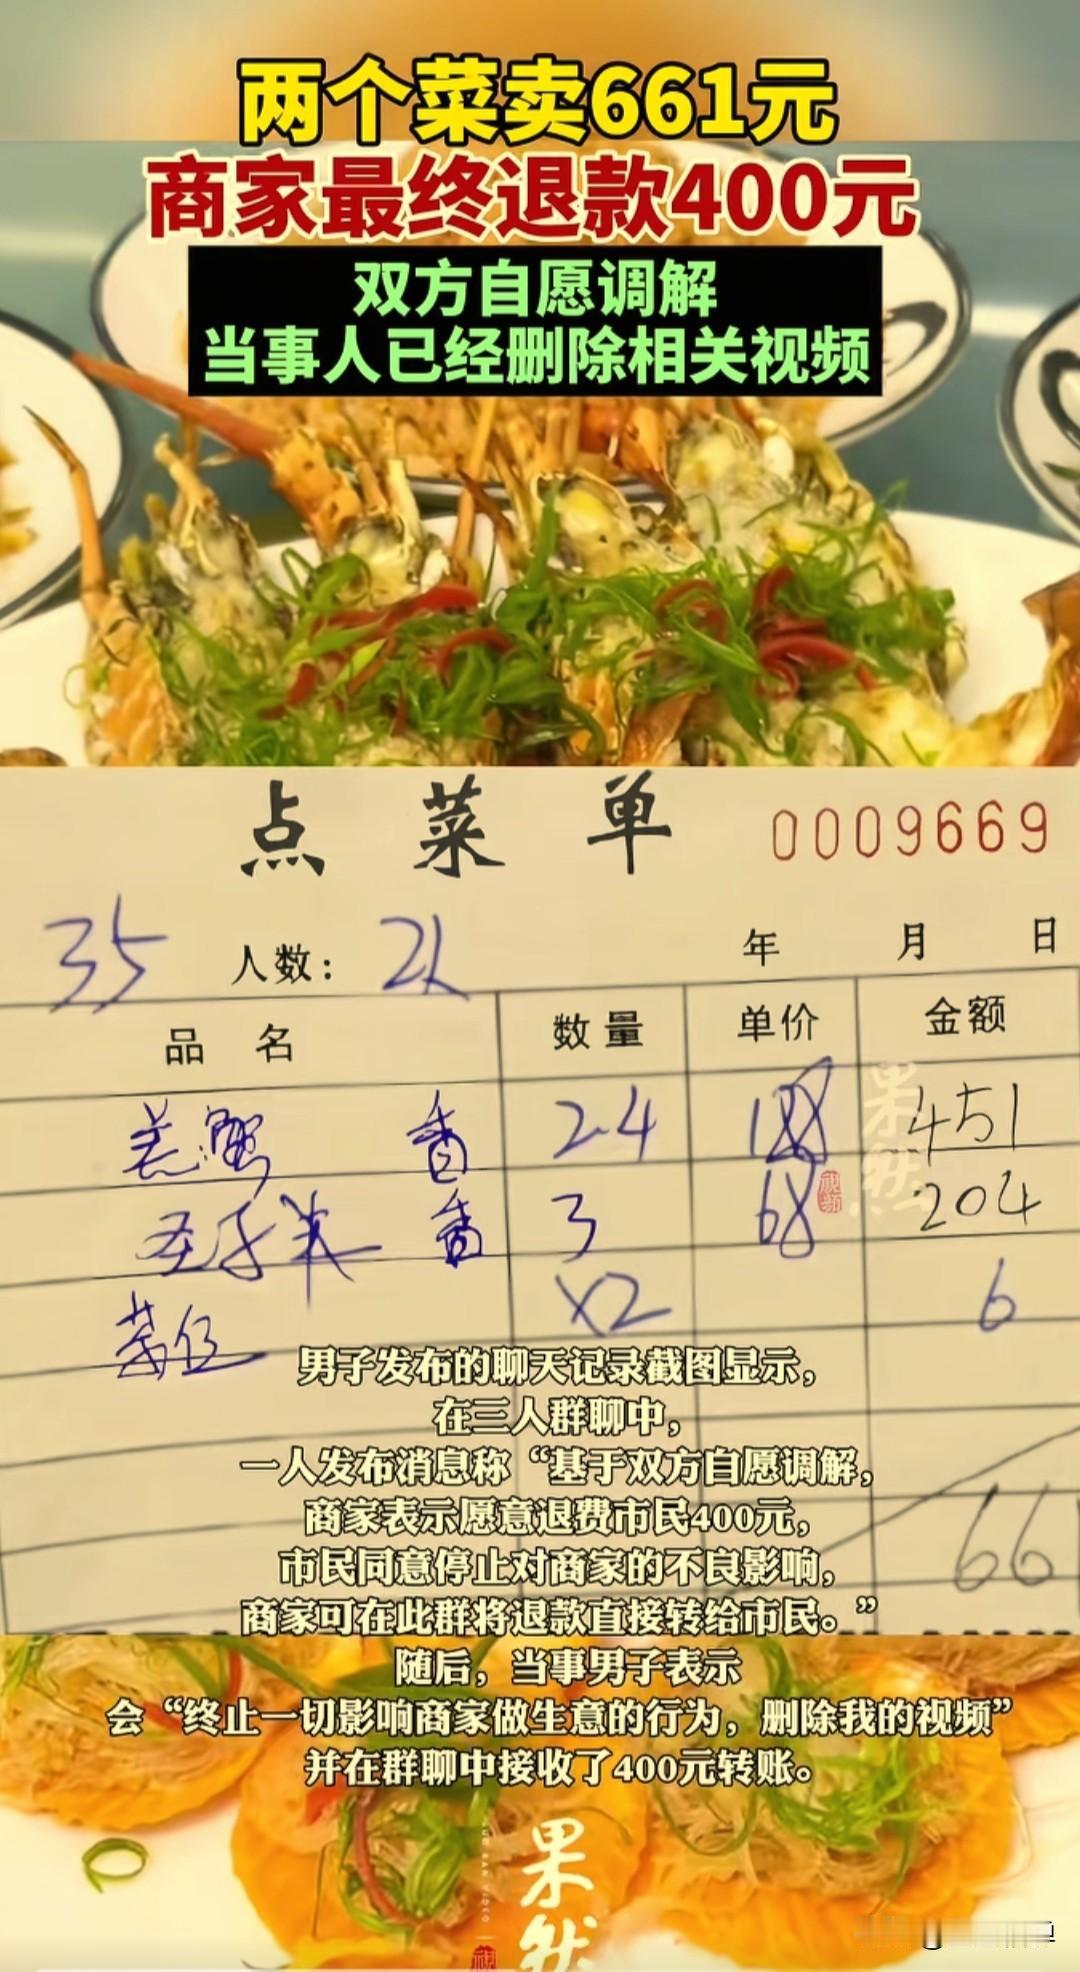 两个菜卖661元
商家最终退款400元
双方自愿调解
当事人已经删除相关视频
点菜单 0009669
35 人数: 2人 年 月 日
品名 数量 单价 金额
姜蟹 香 24 188 451
香 3 68 204
茶位 X2 6
男子发布的聊天记录截图显示，
在三人群聊中，
一人发布消息称“基于双方自愿调解，
商家表示愿意退费市民400元，
市民同意停止对商家的不良影响，
661
商家可在此群将退款直接转给市民。”
随后，当事男子表示
会“终止一切影响商家做生意的行为，删除我的视频”
并在群聊中接收了400元转账。
果然
视频
果然